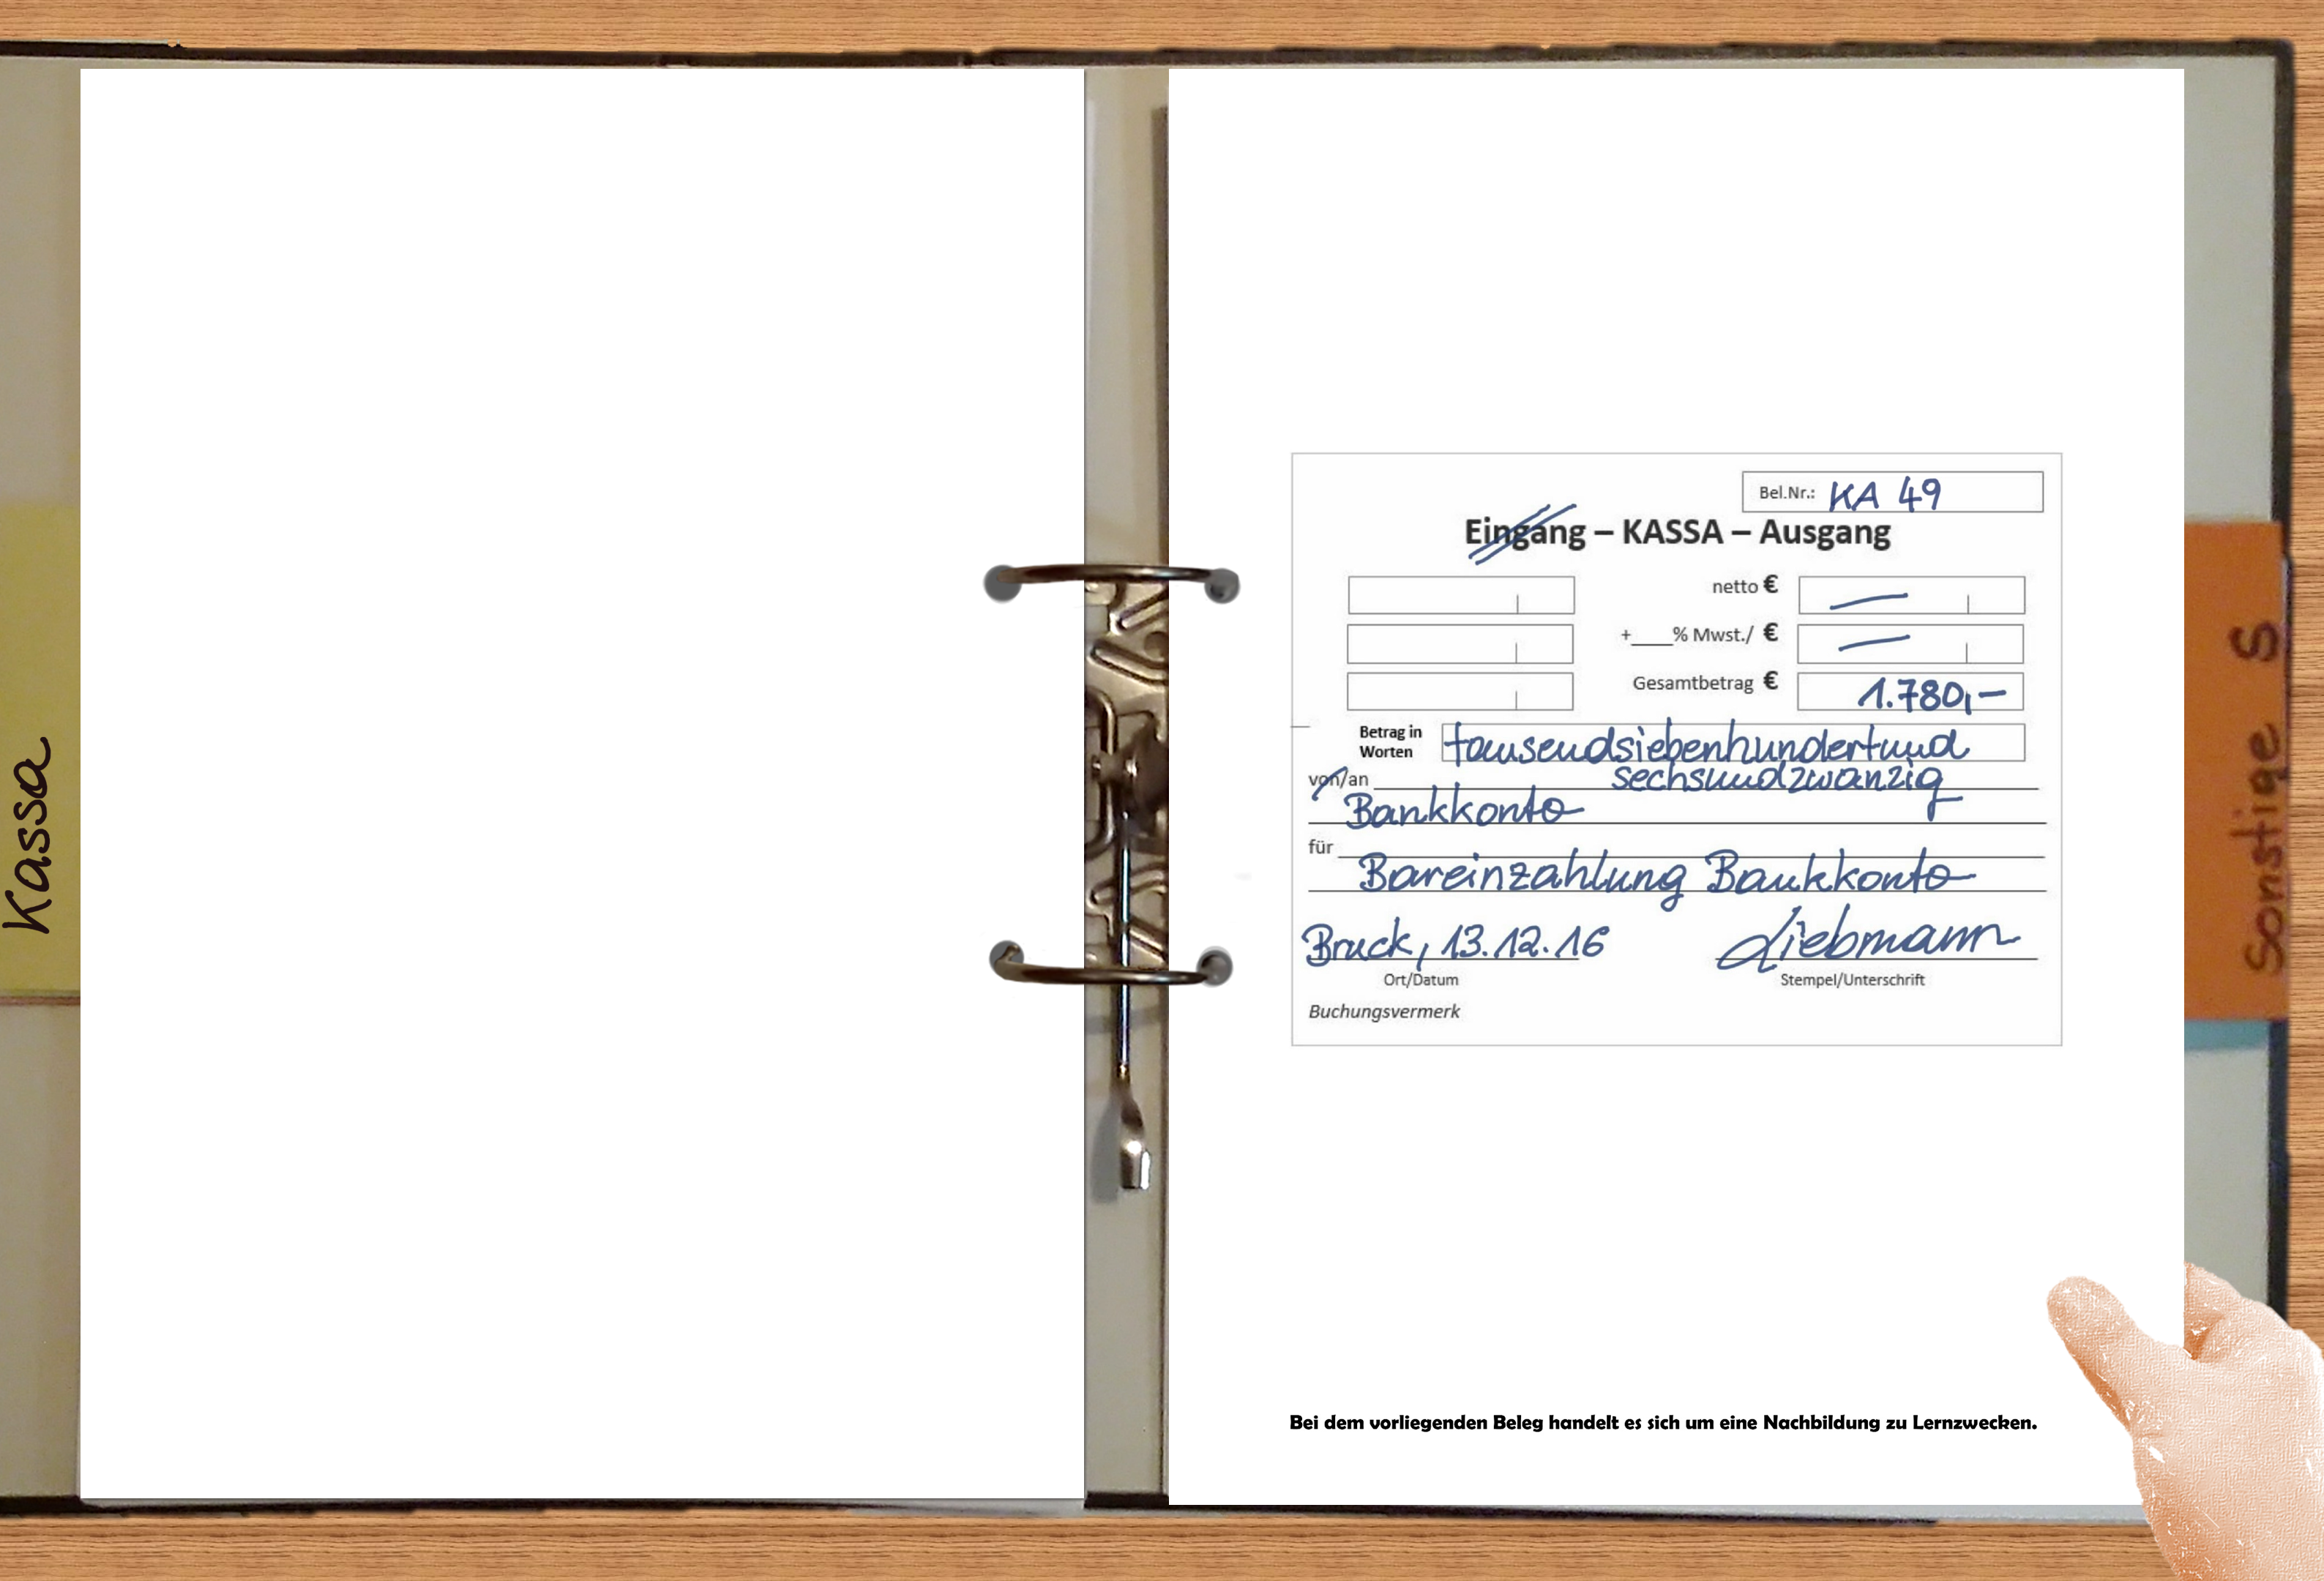 Kassa
Bel.Nr.: KA 49
Eingang – KASSA – Ausgang
netto €
+____% Mwst./ €
Gesamtbetrag € 1.780,–
Betrag in Worten tausendsiebenhundertund
sechsundzwanzig
von/an
Bankkonto
für
Bareinzahlung Bankkonto
Bruck, 13.12.16 Liebmann
Ort/Datum Stempel/Unterschrift
Buchungsvermerk
Sonstige S
Bei dem vorliegenden Beleg handelt es sich um eine Nachbildung zu Lernzwecken.